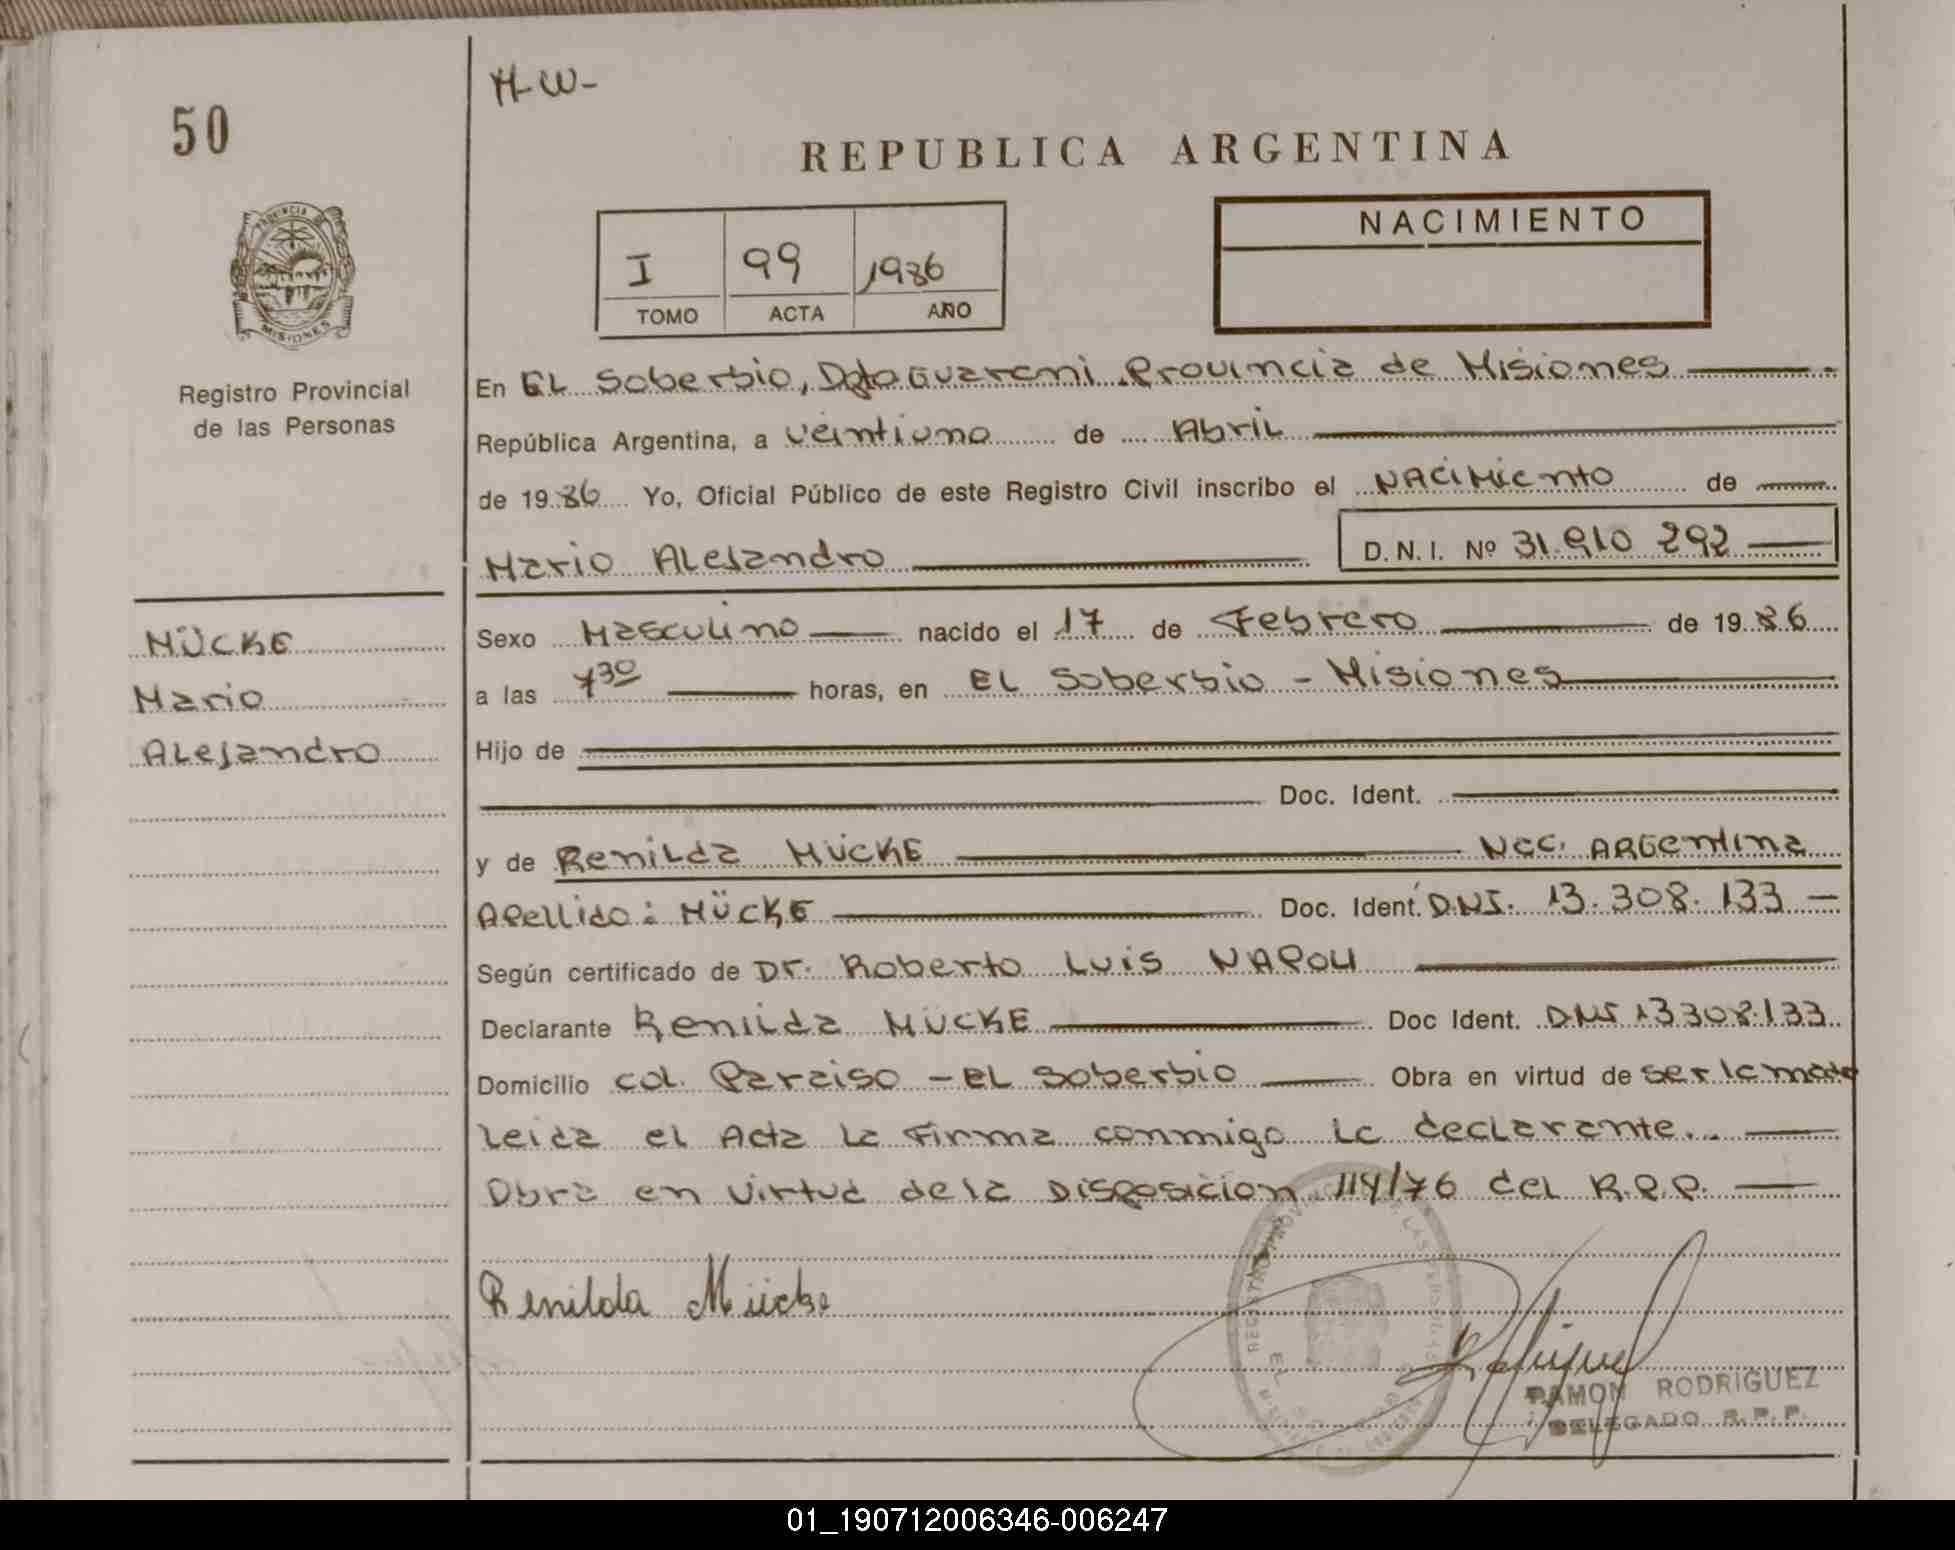 H-W-
50
REPUBLICA ARGENTINA
PROVINCIA DE
MISIONES
I 99 1986
TOMO ACTA AÑO
NACIMIENTO
Registro Provincial
de las Personas
En EL Soberbio, Dpto Guarani Provincia de Misiones
República Argentina, a veintiuno de Abril
de 1986 Yo, Oficial Público de este Registro Civil inscribo el NACIMIENTO de
Mario ALEJandro D.N.I. Nº 31.910 292
MÜCKE
Mario
ALEJandro
Sexo Masculino nacido el 17 de Febrero de 1986
a las 7 30 horas, en EL Soberbio - Misiones
Hijo de
Doc. Ident.
y de ReniLda MÜCKE Nac. ARGentina
Apellido: MÜCKE Doc. Ident. DNI. 13.308.133
Según certificado de Dr. Roberto Luis NAPOLI
Declarante Renilda MÜCKE Doc Ident. DNI 13308.133
Domicilio col. Paraiso - EL Soberbio Obra en virtud de ser la madre
Leida el Acta la Firma conmigo la declarante.
Obra en virtud de la Disposicion 114/76 del R.P.P.
Renilda Mücke
REGISTRO PROVINCIAL DE LAS PERSONAS
RAMON RODRIGUEZ
DELEGADO R.P.P.
01_190712006346-006247